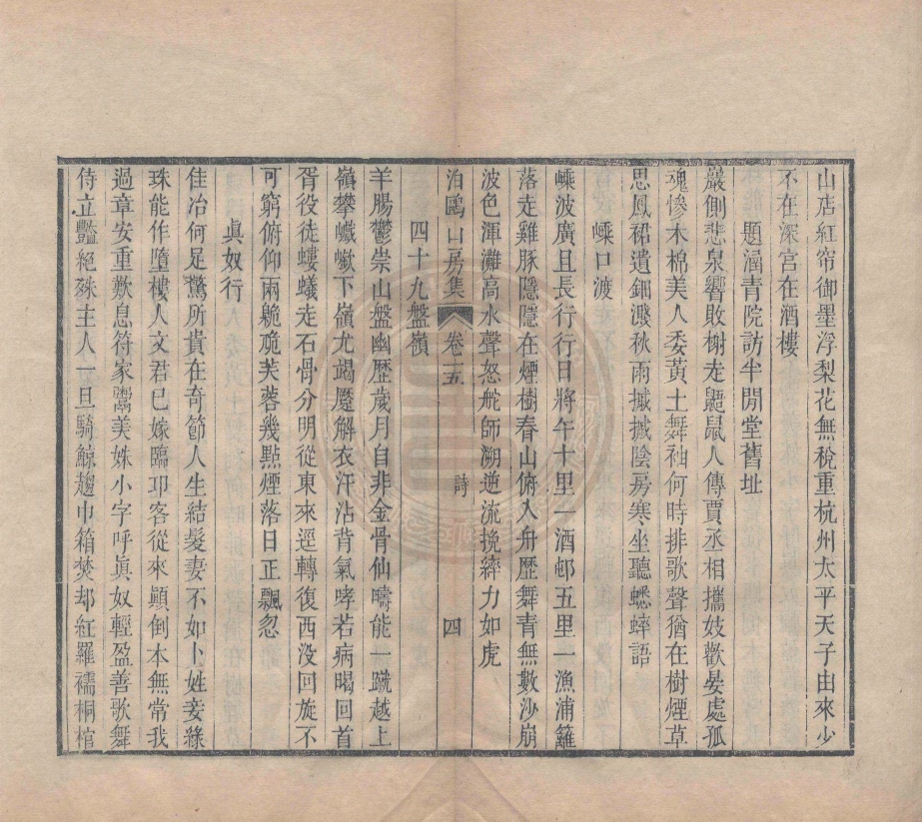 山店紅帘御墨浮梨花無稅重杭州太平天子由來少
不在深宮在酒樓
題湢青院訪半閒堂舊址
巖側悲泉響敗榭走鼯鼠人傳賈丞相攜妓歡晏處孤
魂慘木棉美人委黃土舞袖何時排歌聲猶在樹煙草
思鳳裙遺鈿潑秋雨摵摵陰房寒坐聽蟋蟀語
嵊口渡
嵊波廣且長行行日將午十里一酒邨五里一漁浦籬
落走雞豚隱隱在煙樹春山俯入舟歷舞青無數沙崩
波色渾灘高水聲怒舵師溯逆流挽縴力如虎
泊鷗山房集 卷十五 詩 四
四十九盤嶺
羊腸鬱崇山盤幽歷歲月自非金骨仙疇能一蹴越上
嶺攀巇嶮下嶺尤竭蹷解衣汗沾背氣哮若病暍回首
胥役徒螻蟻走石骨分明從東來逕轉復西沒回旋不
可窮俯仰兩臲卼芙蓉幾點煙落日正飄忽
眞奴行
佳冶何足驚所貴在奇節人生結髮妻不如卜姓妾綠
珠能作墮樓人文君已嫁臨邛客從來顚倒本無常我
過章安重歎息符家鬻美姝小字呼眞奴輕盈善歌舞
侍立豔絕殊主人一旦騎鯨趨巾箱焚却紅羅襦桐棺